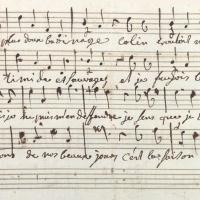 plus doux badinage Colin vouloit
timide et sauvage et je fuyois l
je ne puis m'en deffendre je sens que je
ons de nos beaux jours c'est la saison